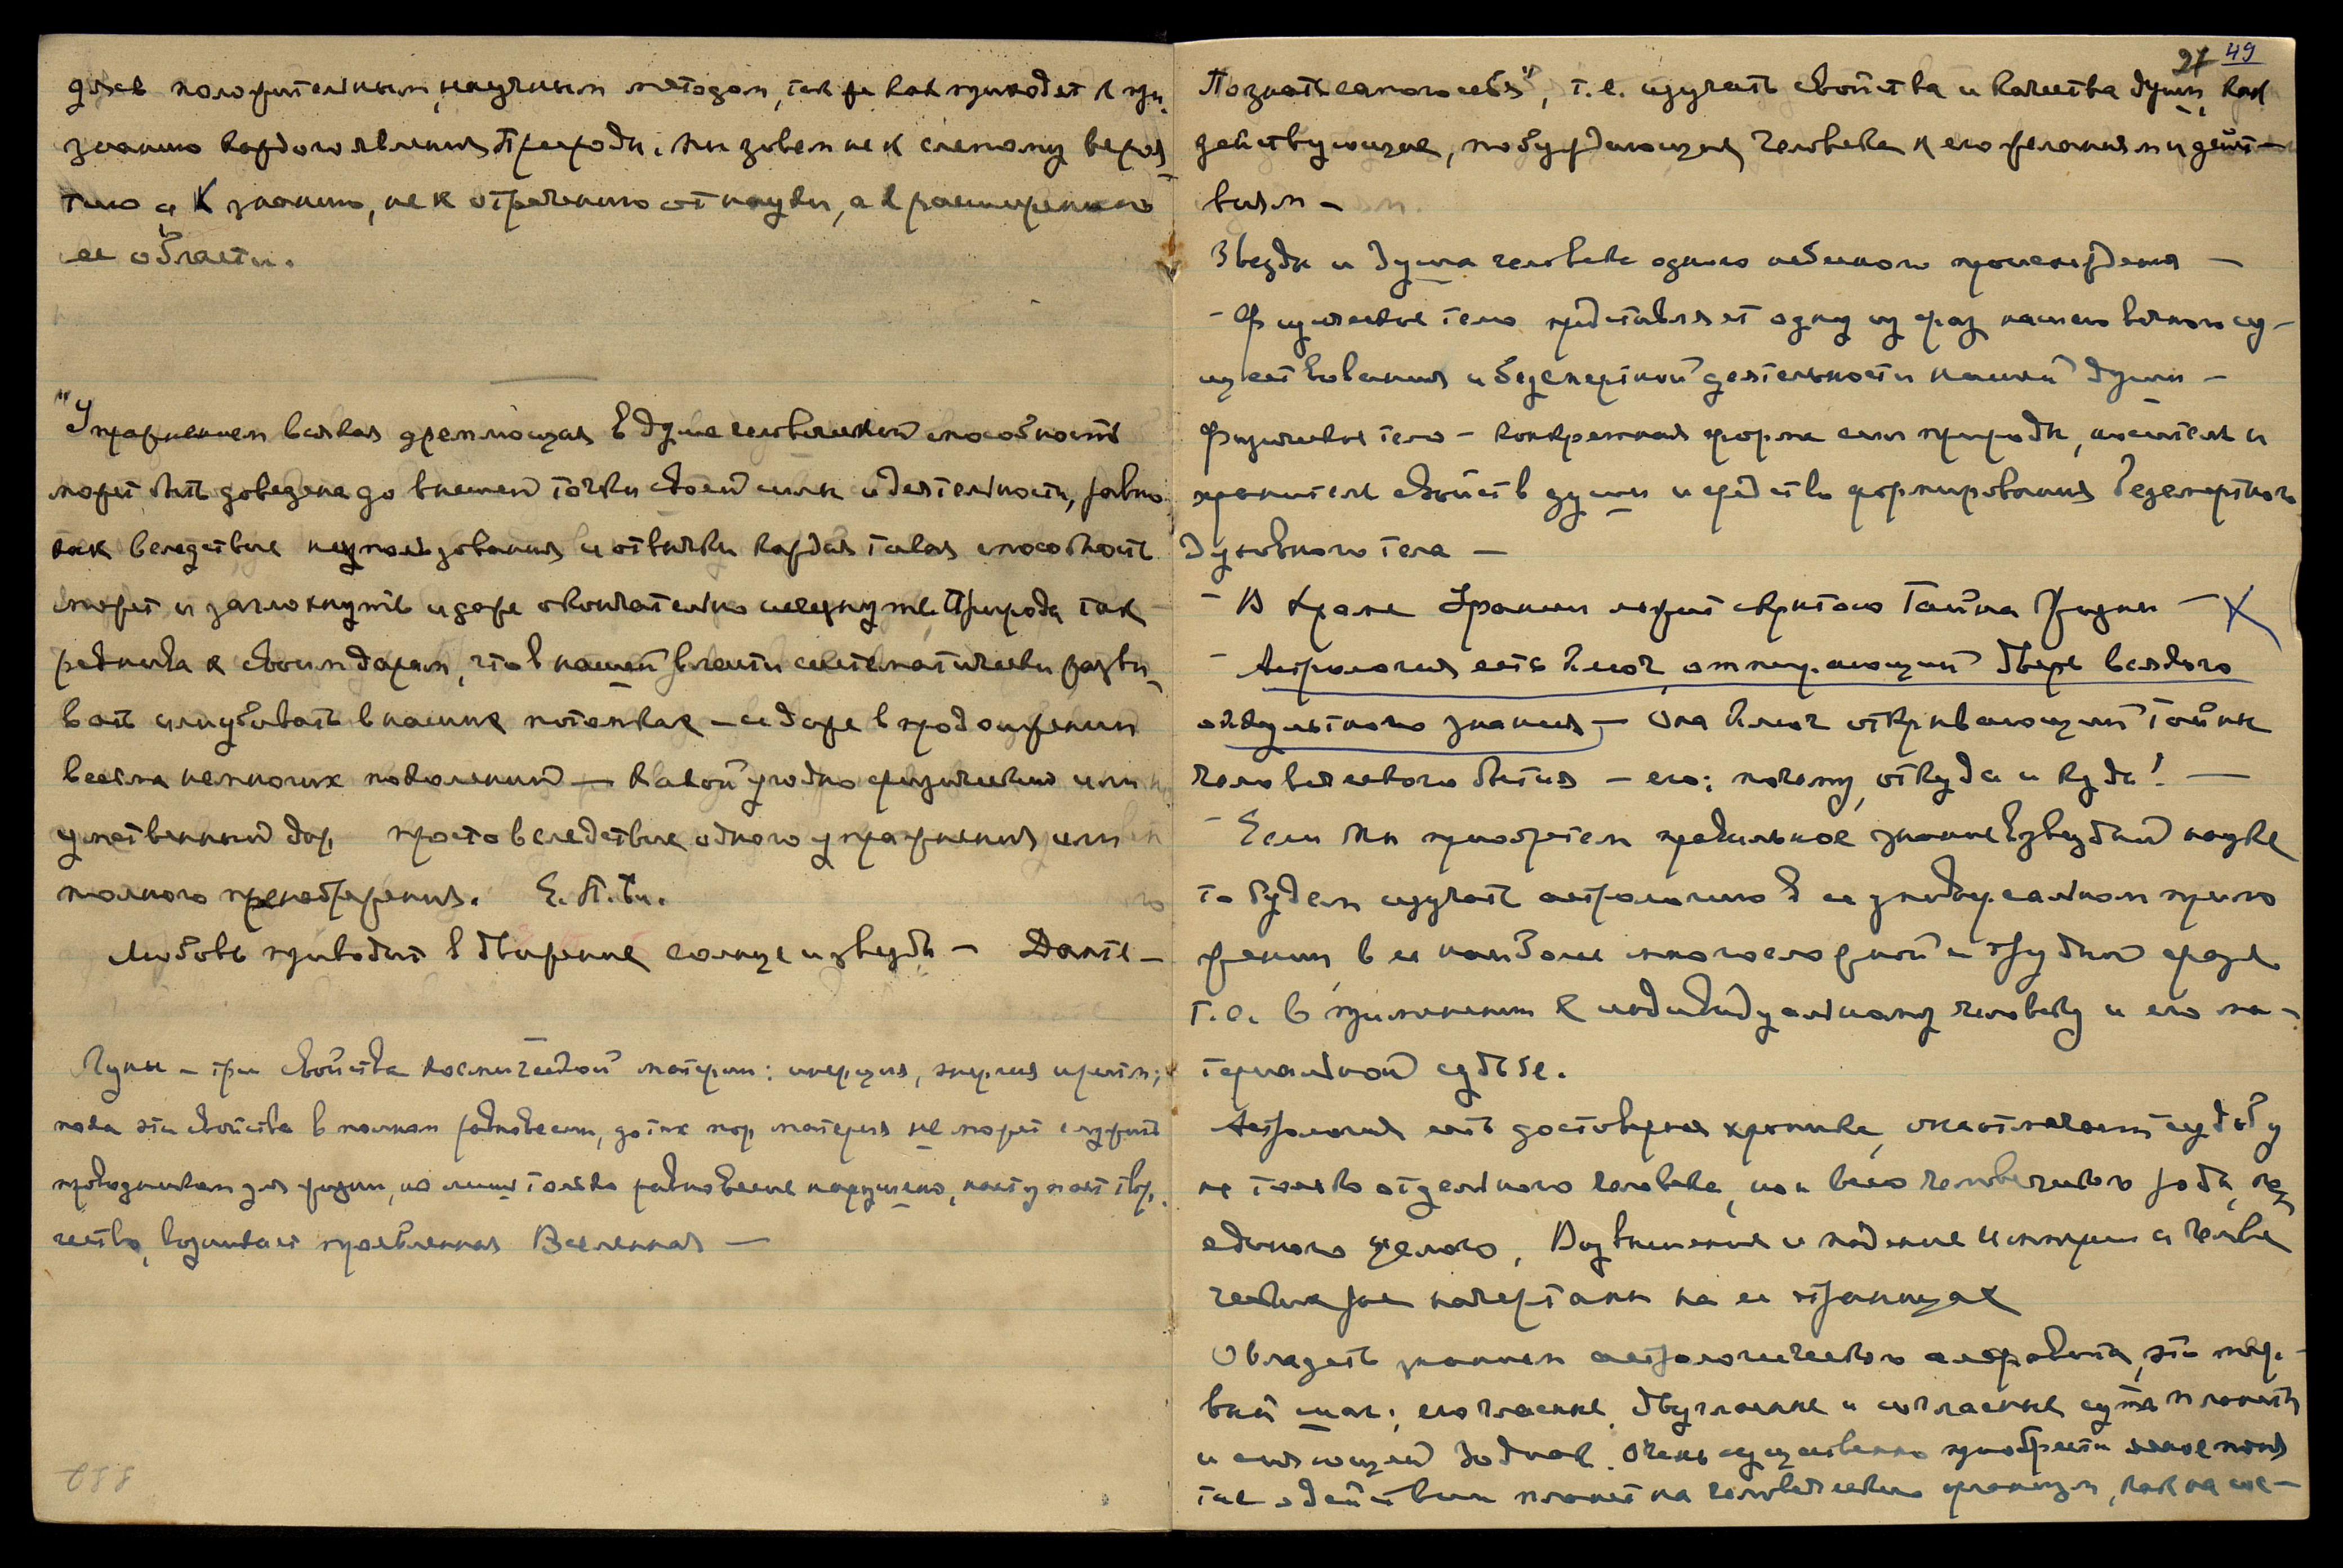 дует положительным, научным методом, так же как приходят к при-
знанию каждого явления Природы. Мы зовем не к слепому верова-
нию а К знанию, не к отречению от науки, а к расширению
ее области.
"Упражнением всякая дремлющая в душе человеческой способность
может быть доведена до высшей точки своей силы и деятельности, равно
как вследствие неупользования и отвычки каждая такая способность
может и заглохнуть и даже окончательно исчезнуть. Природа так
ревнива к своим дарам, что в нашей власти систематически разви-
вать или убивать в наших потомках — и даже в продолжении
весьма немногих поколений — какой угодно физический или
умственный дар, просто вследствие одного упражнения или
полного пренебрежения. Е. П. Бл.
Любовь приводит в движение солнце и звезды — Данте —
Гуны — три свойства космической материи: инерция, энергия и ритм;
пока эти свойства в полном равновесии, до тех пор материя не может служить
проводником для жизни, но лишь только равновесие нарушено, наступает твор-
чество, возникает проявленная Вселенная —
21 49
Познать самого себя", т.е. изучать свойства и качества души, как
действующие, побуждающия человека к его желаниям и дейст-
виям —
Звезды и душа человека одного небесного происхождения —
- Физическое тело представляет одну из фаз нашего вечного су-
ществования и безсмертной деятельности нашей души —
Физическое тело — конкретная форма сил природы, носитель и
хранитель свойств души и средство формирования безсмертного
Духовного тела —
- В Храме Урании лежит скрытою Тайна Жизни — X
- Астрология есть ключ, отпирающий дверь всякого
оккультного знания — Она ключ открывающий тайны
человеческого бытия — его: почему, откуда и куда! —
- Если мы приобретем правильное знание в звездной науке
то будем изучать астрологию в ее универсальном прило
жении, в ее наиболее многосложной и трудной фазе
т.е. в применении к индивидуальному человеку и его ма-
териальной судьбе.
Астрология есть достоверная хроника, она отмечает судьбу
не только отдельного человека, но и всего человеческого рода, как
единого целого. Возвышения и падение Империи а человече
ские начертаны на ее страницах
Овладеть знанием астрологического алфавита, это пер-
вый шаг; его гласные, двугласные и согласные суть планеты
и сияющий Зодиак. Очень существенно приобрести ясное поня
тие о действии планет на человеческий организм, как на сис-